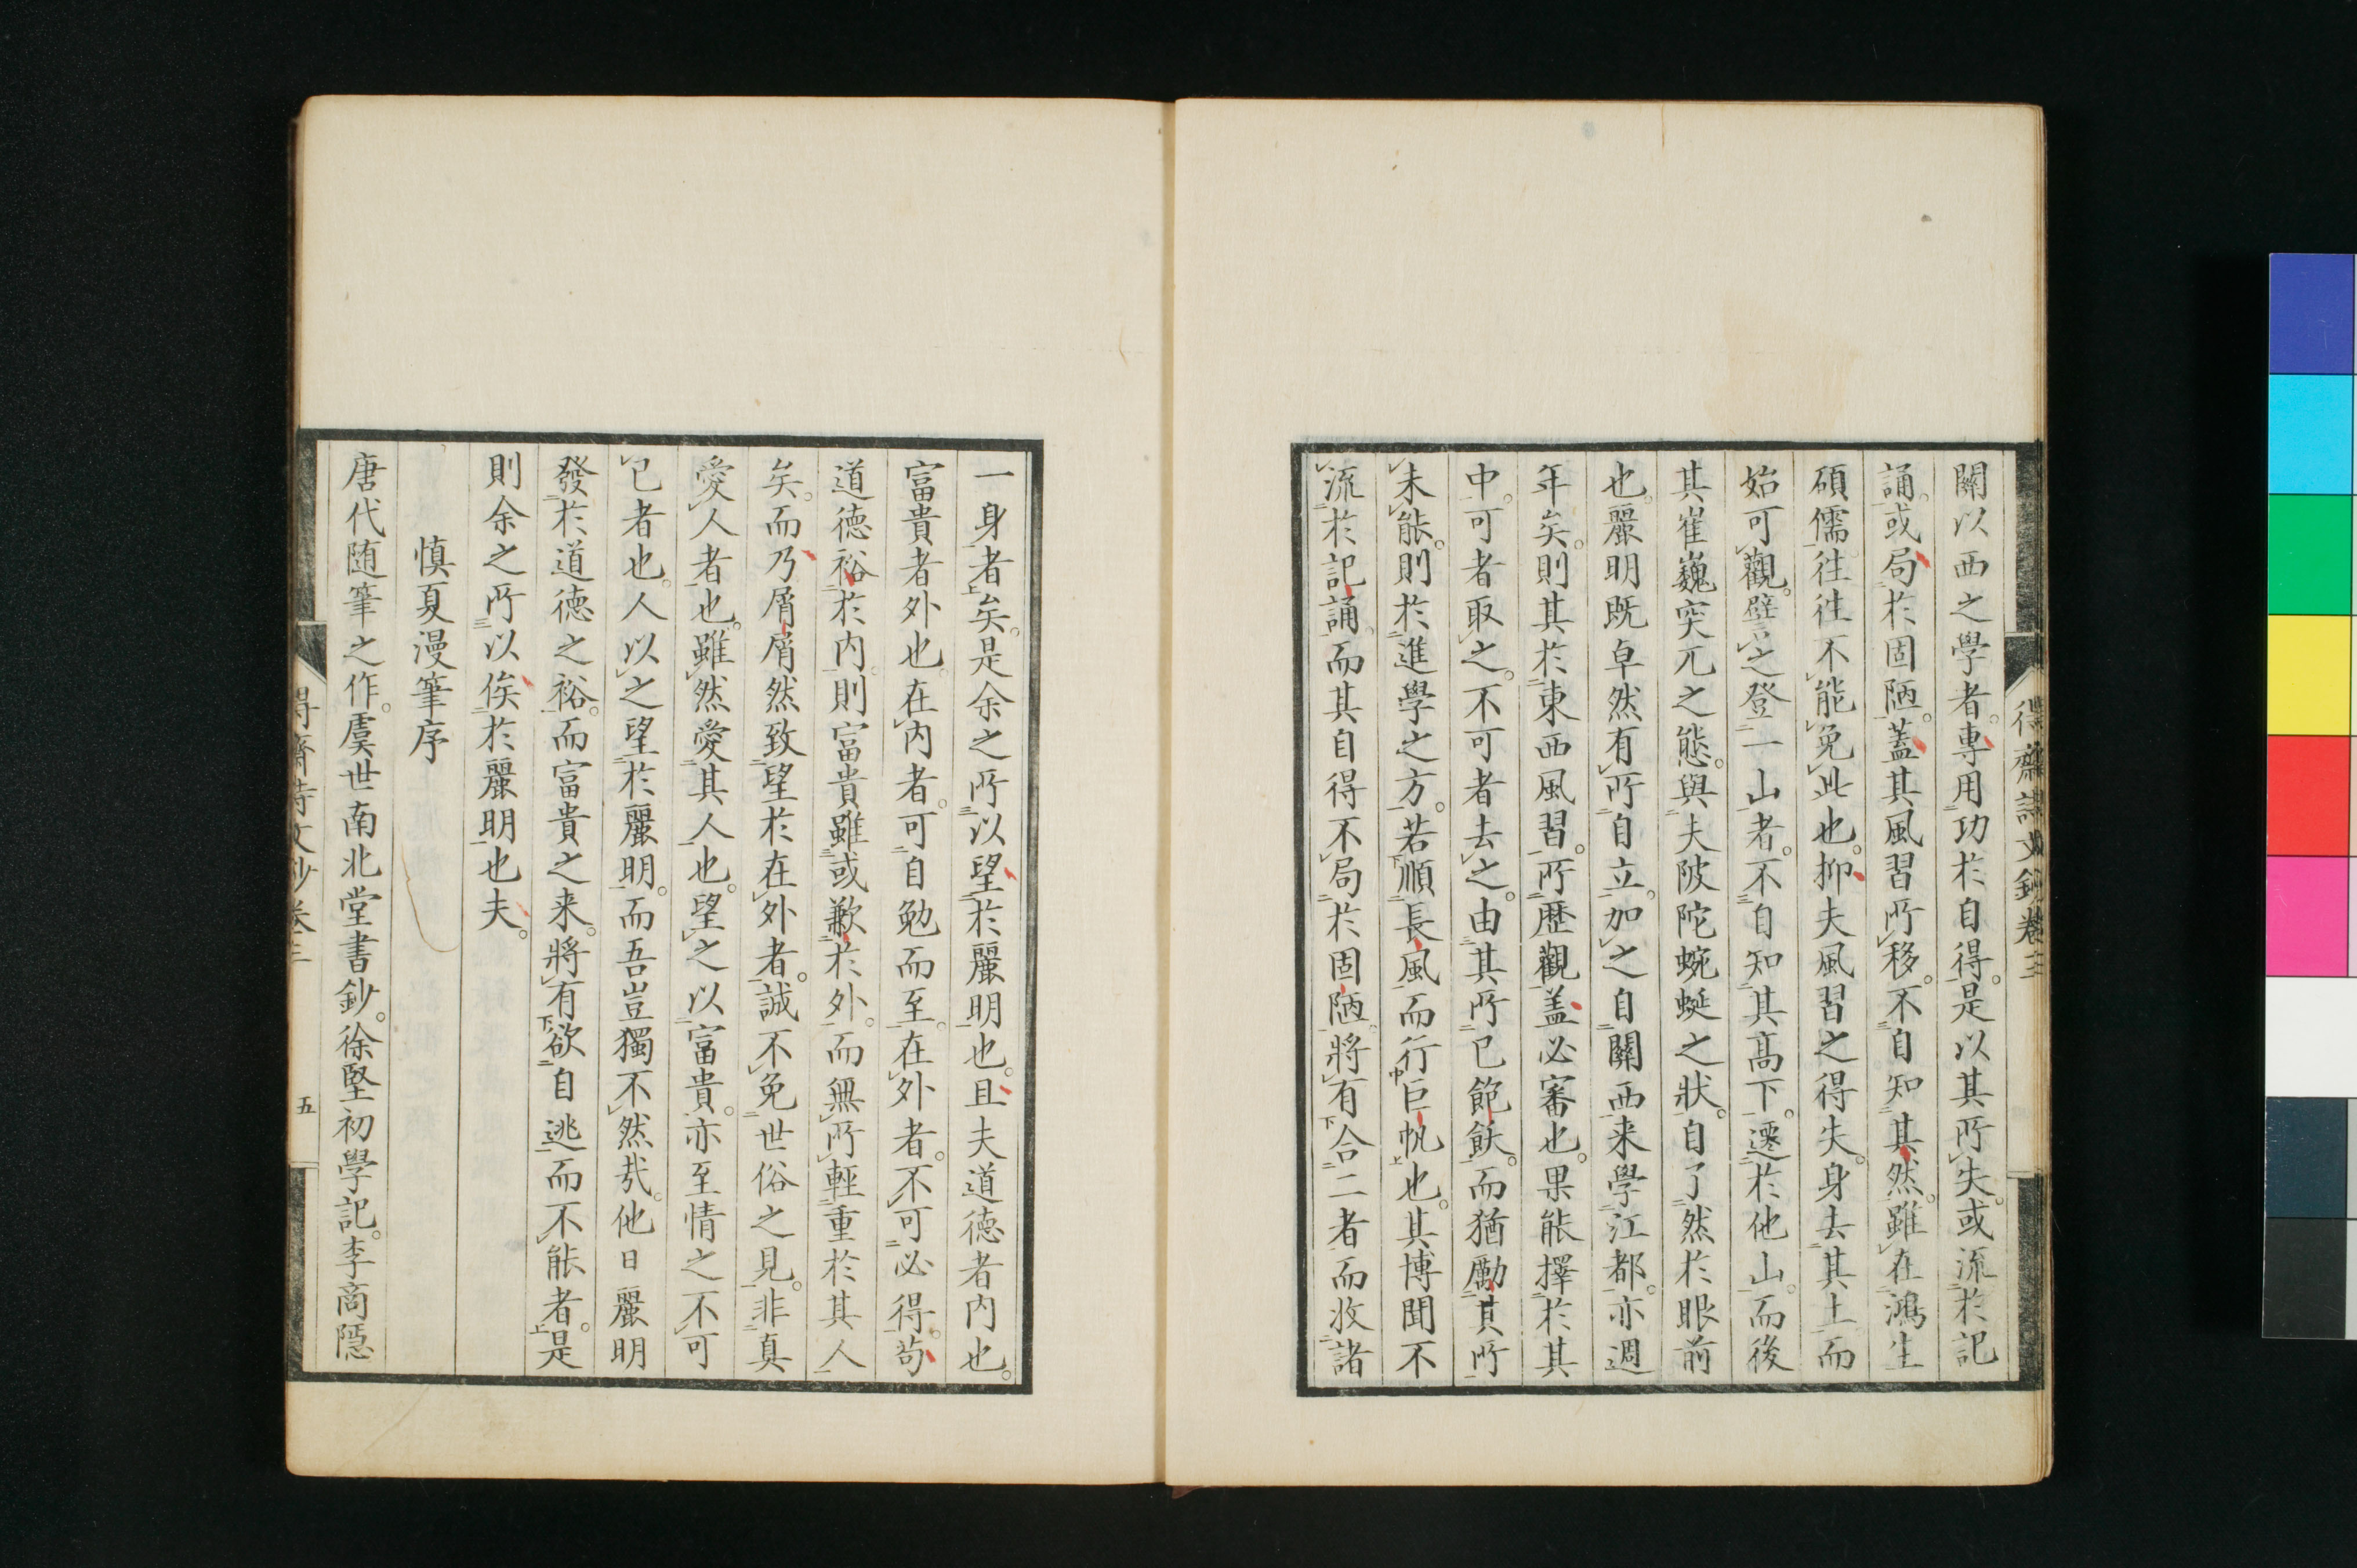 關以西之學者。專用功於自得。是以其所失。或流於記
誦。或局於固陋。蓋其風習所移。不自知其然。雖在鴻生
碩儒。往往不能免此也。抑夫風習之得失。身去其土而
始可觀。譬之登一山者。不自知其高下。遷於他山。而後
其崔巍突兀之態。與夫陂陀蜿蜒之狀。自了然於眼前
也。麗明既卓然有所自立。加之自關西来學江都。亦週
年矣。則其於東西風習。所歴觀。盖必審也。果能擇於其
中。可者取之。不可者去之。由其所已飽飫。而猶勵其所
未能。則於進學之方。若順長風而行巨帆也。其博聞不
流於記誦。而其自得不局於固陋。將有合二者而收諸
一身者矣。是余之所以望於麗明也。且夫道徳者内也。
富貴者外也。在内者。可自勉而至。在外者。不可必得。苟
道徳裕於内。則富貴雖或歉於外。而無所輕重於其人
矣。而乃屑屑然致望於在外者。誠不免世俗之見。非真
愛人者也。雖然愛其人也。望之以富貴。亦至情之不可
已者也。人以之望於麗明。而吾豈獨不然哉。他日麗明
發於道徳之裕。而富貴之来。將有欲自逃而不能者。是
則余之所以俟於麗明也夫。
慎夏漫筆序
唐代随筆之作。虞世南北堂書鈔。徐堅初學記。李商隠
五